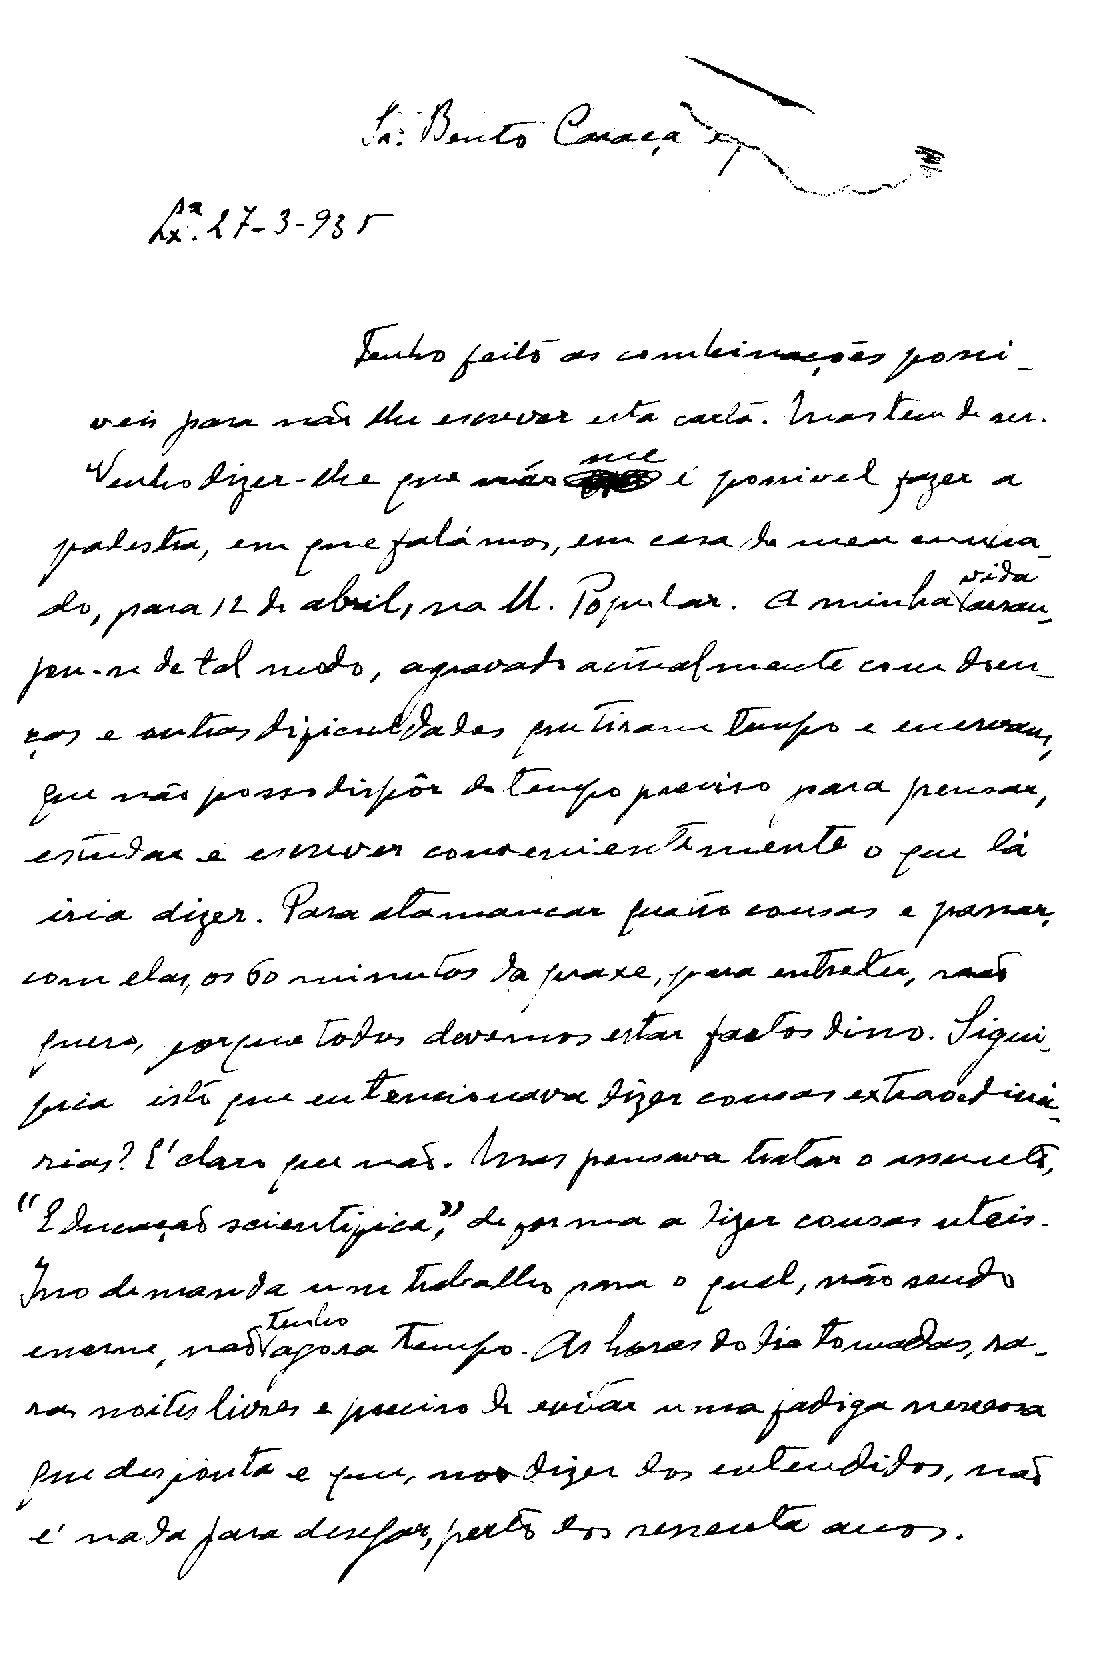 Sr. Bento Caraça
Lxª. 27-3-935
Tenho feito as combinações possi-
veis para não lhe escrever esta carta. Mas tem de ser.
Venho dizer-lhe que não me é possivel fazer a
palestra, em que falámos, em casa de meu cunha-
do, para 12 de abril, na U. Popular. A minha vida arran-
jou-se de tal modo, agravado actualmente com doen-
ças e outras dificuldades que tiram tempo e enervam,
que não posso dispôr do tempo preciso para pensar,
estudar e escrever convenientemente o que lá
iria dizer. Para atamancar quatro cousas e passar,
com elas, os 60 minutos da praxe, para entreter, não
quero, porque todos devemos estar fartos disso. Signi-
fica isto que eu tencionava dizer cousas extraordiná-
rias? E' claro que não. Mas pensava tratar o assunto,
"Educação scientifica", de forma a dizer cousas uteis.
Isso demanda um trabalho para o qual, não sendo
enorme, não tenho agora tempo. As horas do dia tomadas, ra-
ras noites livres e preciso de evitar uma fadiga nervosa
que desponta e que, no dizer dos entendidos, não
é nada para desejar, perto dos sessenta anos.